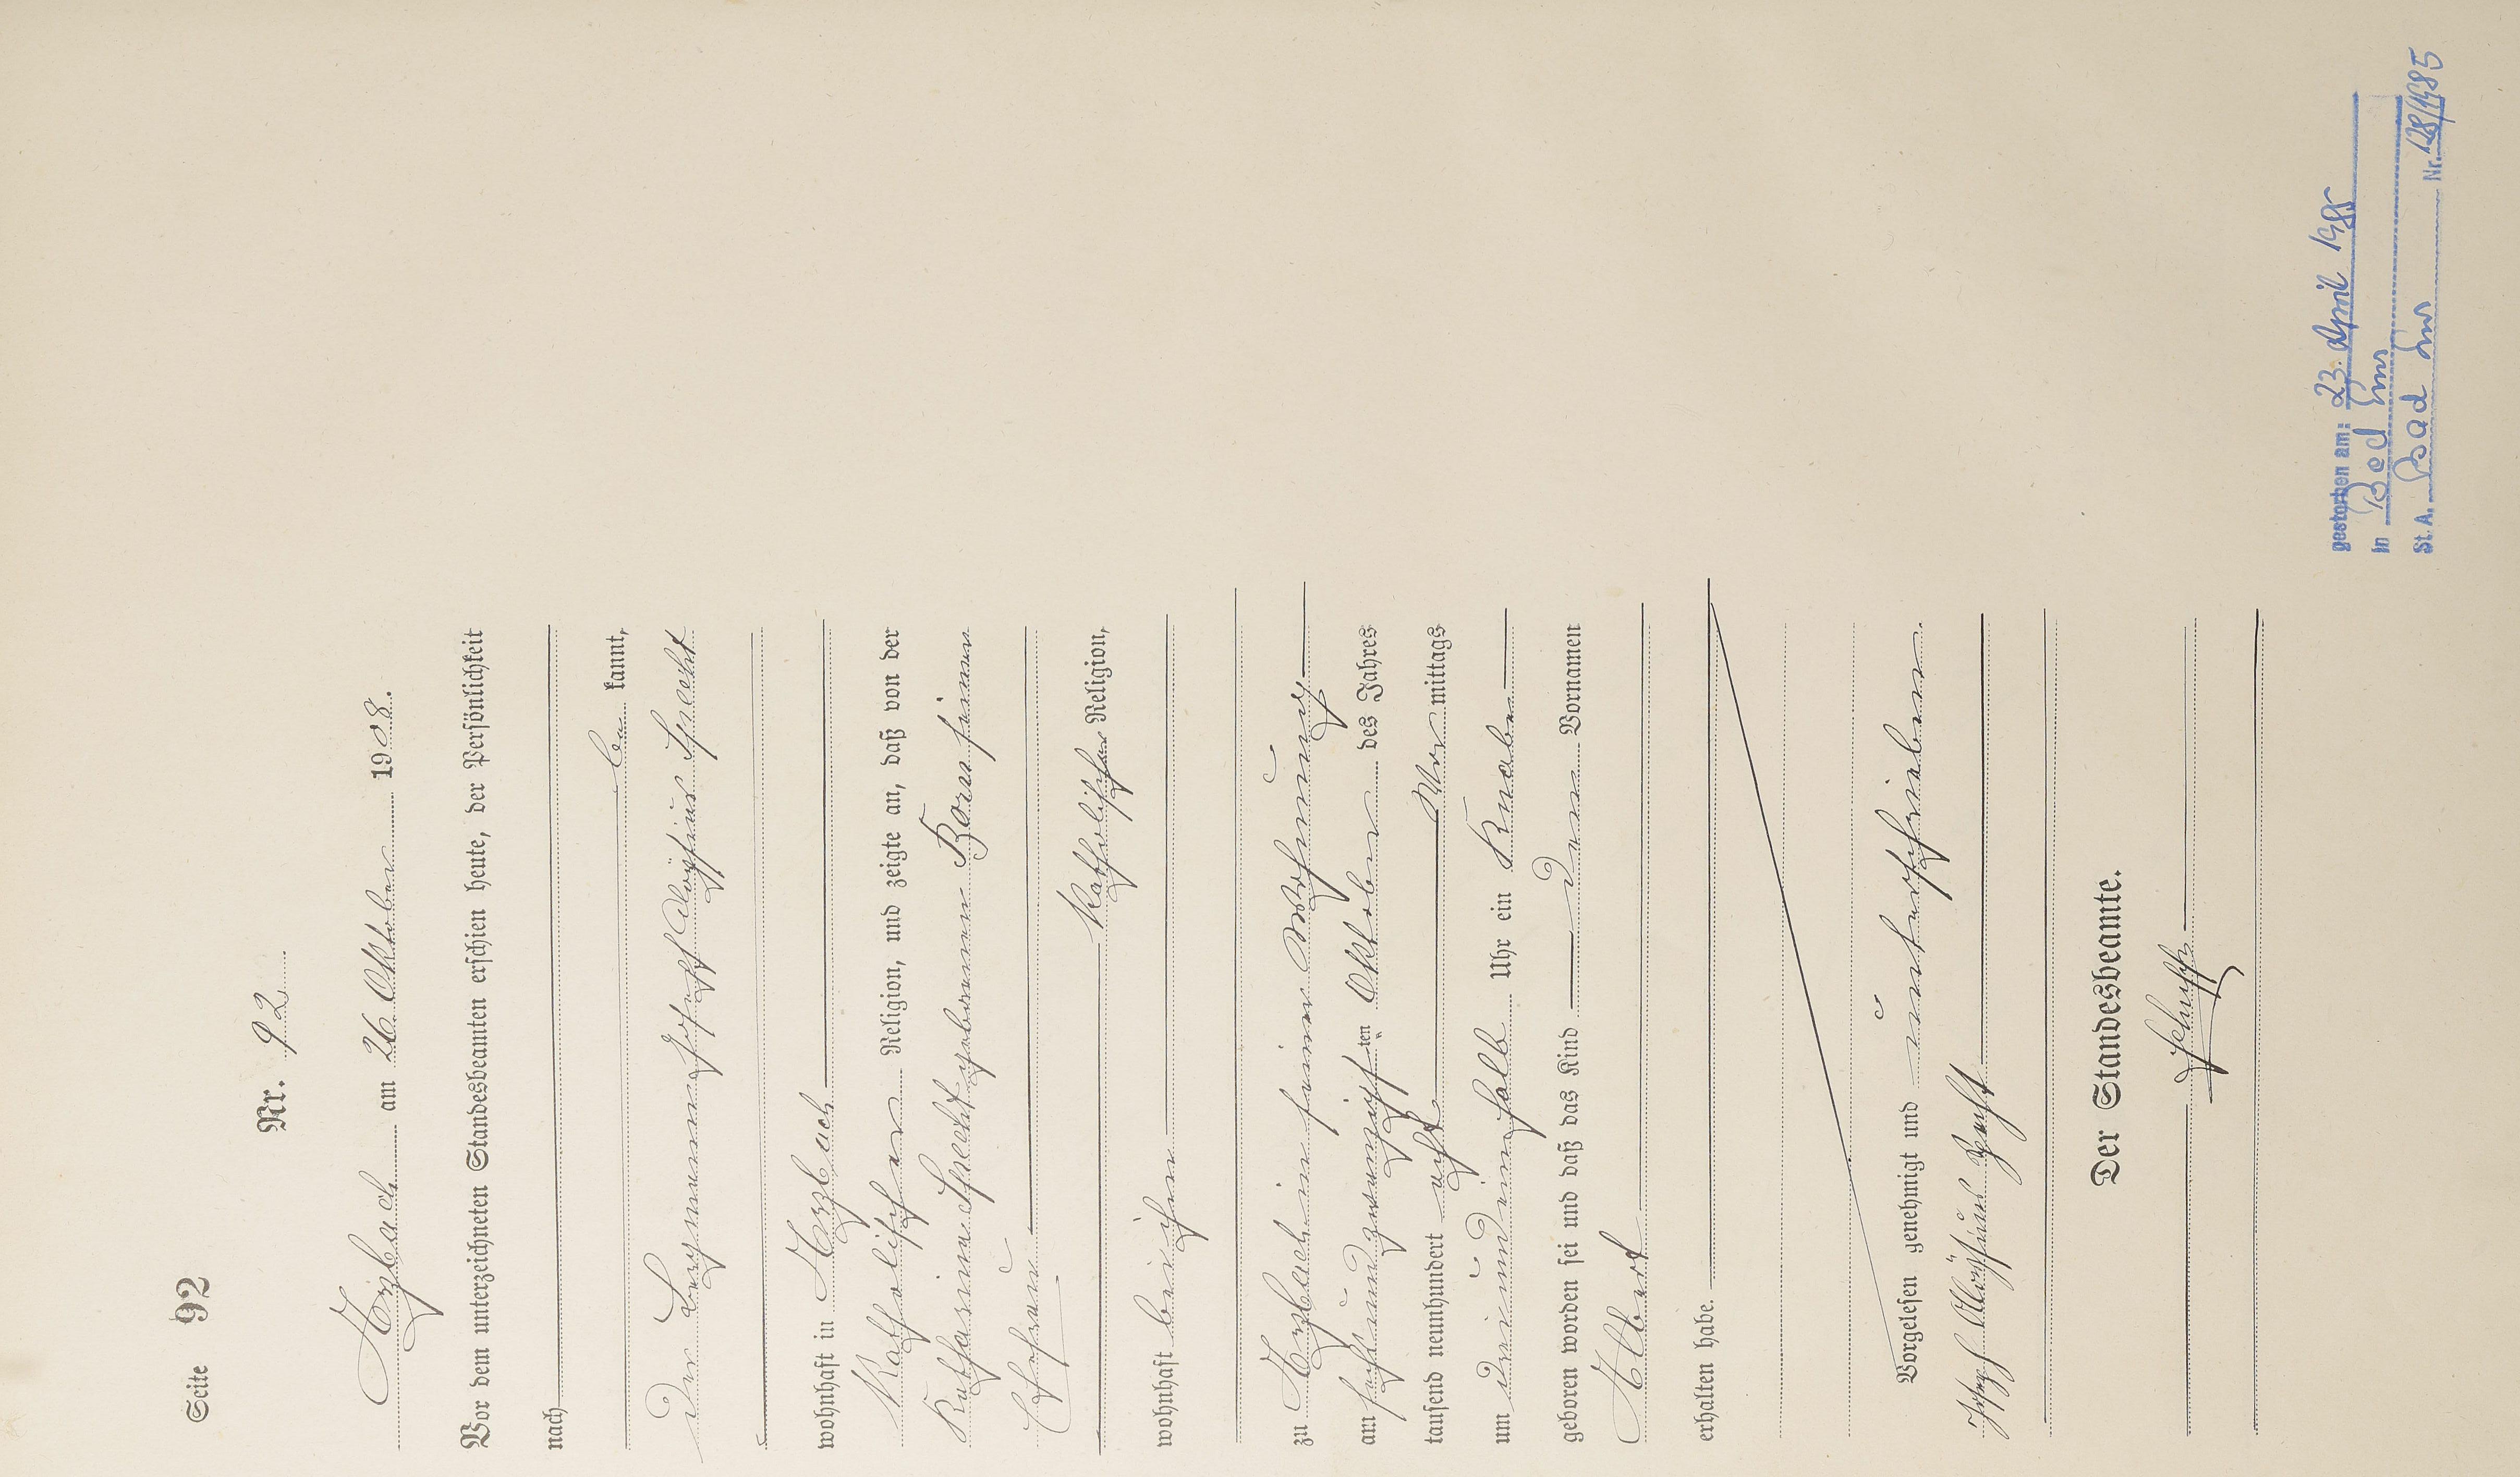 Seite 92
Nr. 92
Arzbach am 26. Oktober 1908.
Vor dem unterzeichneten Standesbeamten erschien heute, der Persönlichkeit
nach
be kannt,
der Bergmann Joseph Aloysius Specht
wohnhaft in Arzbach
Katholischer Religion, und zeigte an, daß von der
Katharina Specht geborenen
Ehefrau
Katholischer Religion,
wohnhaft bei ihm
zu Arzbach in seiner Wohnung
am sechsundzwanzigsten Oktober des Jahres
tausend neunhundert acht Vor mittags
um dreiundeinhalb Uhr ein Knabe
geboren worden sei und daß das Kind den Vornamen
Albert
erhalten habe.
Vorgelesen genehmigt und unterschrieben
Joseph Aloysius Specht
Der Standesbeamte.
gestorben am: 23. April 1985
in Bad Ems
St. A. Bad Ems Nr. 128/1985